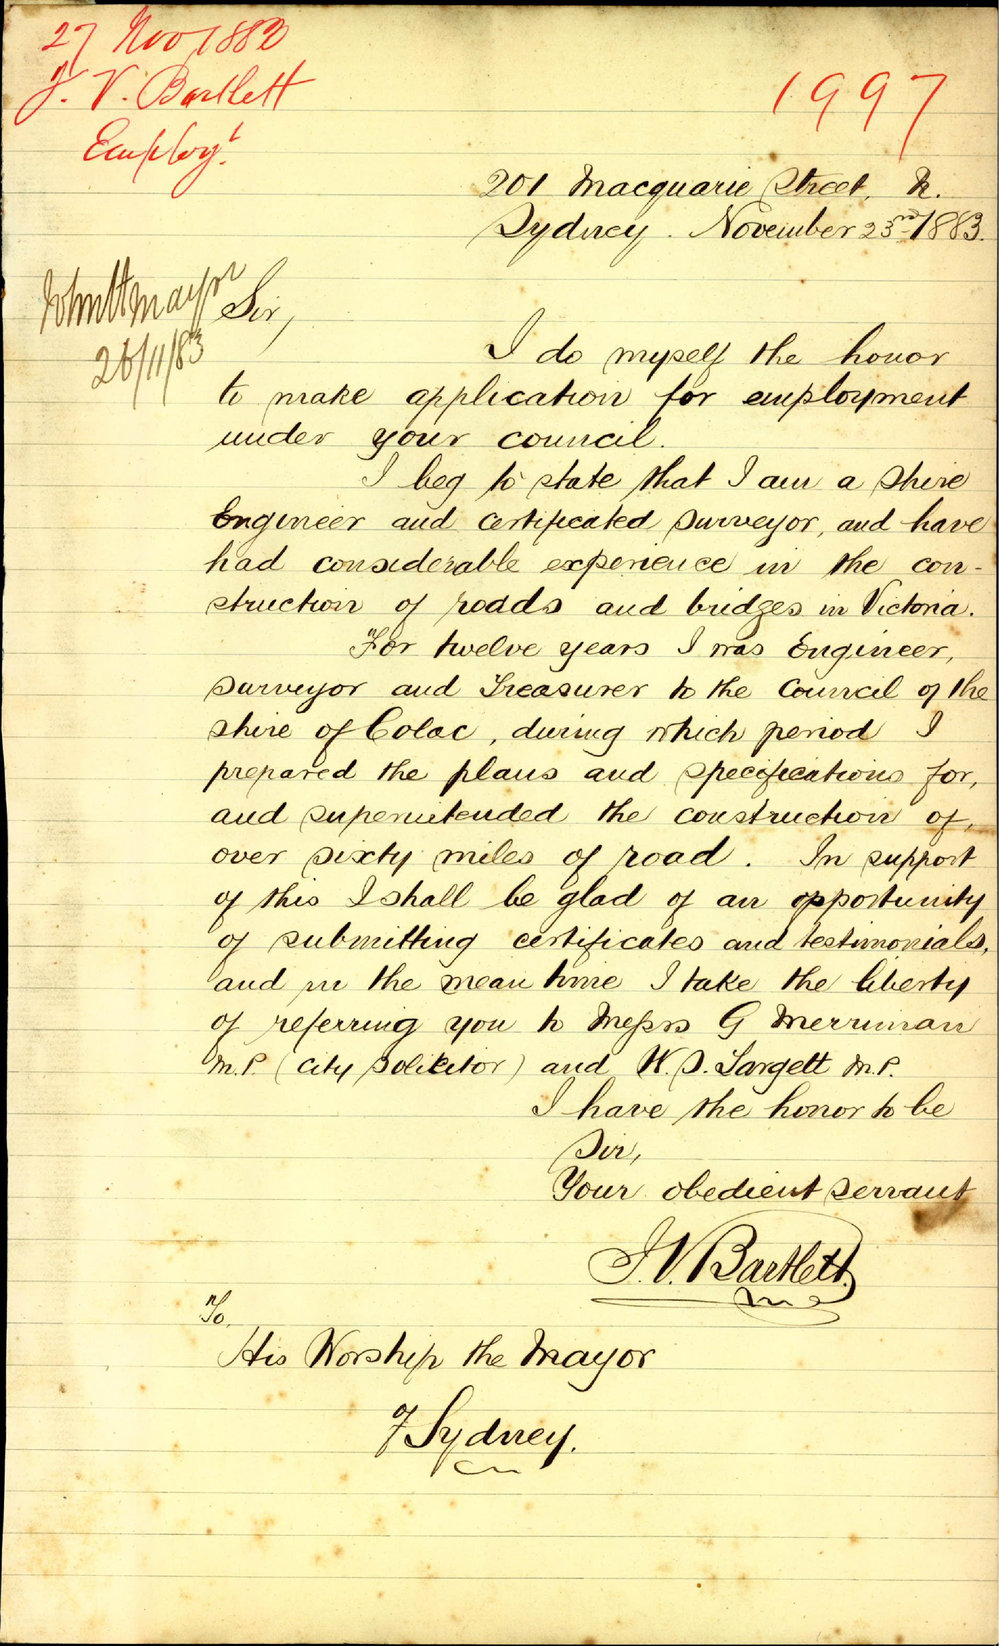 27 Nov 1883
J. V. Bartlett
Employt.
1997
201 Macquarie Street, N.
Sydney. November 23rd 1883.
Mayor
26/11/83
Sir,
I do myself the honor
to make application for employment
under your council.
I beg to state that I am a Shire
Engineer and certificated surveyor, and have
had considerable experience in the con-
struction of roads and bridges in Victoria.
For twelve years I was Engineer,
surveyor and Treasurer to the Council of the
shire of Colac, during which period I
prepared the plans and specifications for,
and superintended the construction of,
over sixty miles of road. In support
of this I shall be glad of an opportunity
of submitting certificates and testimonials,
and in the mean time I take the liberty
of referring you to Messrs G Merriman
M.P. (City Solicitor) and W. S. Targett M.P.
I have the honor to be
Sir,
Your obedient servant
J. V. Bartlett.
To,
His Worship the Mayor
of Sydney.